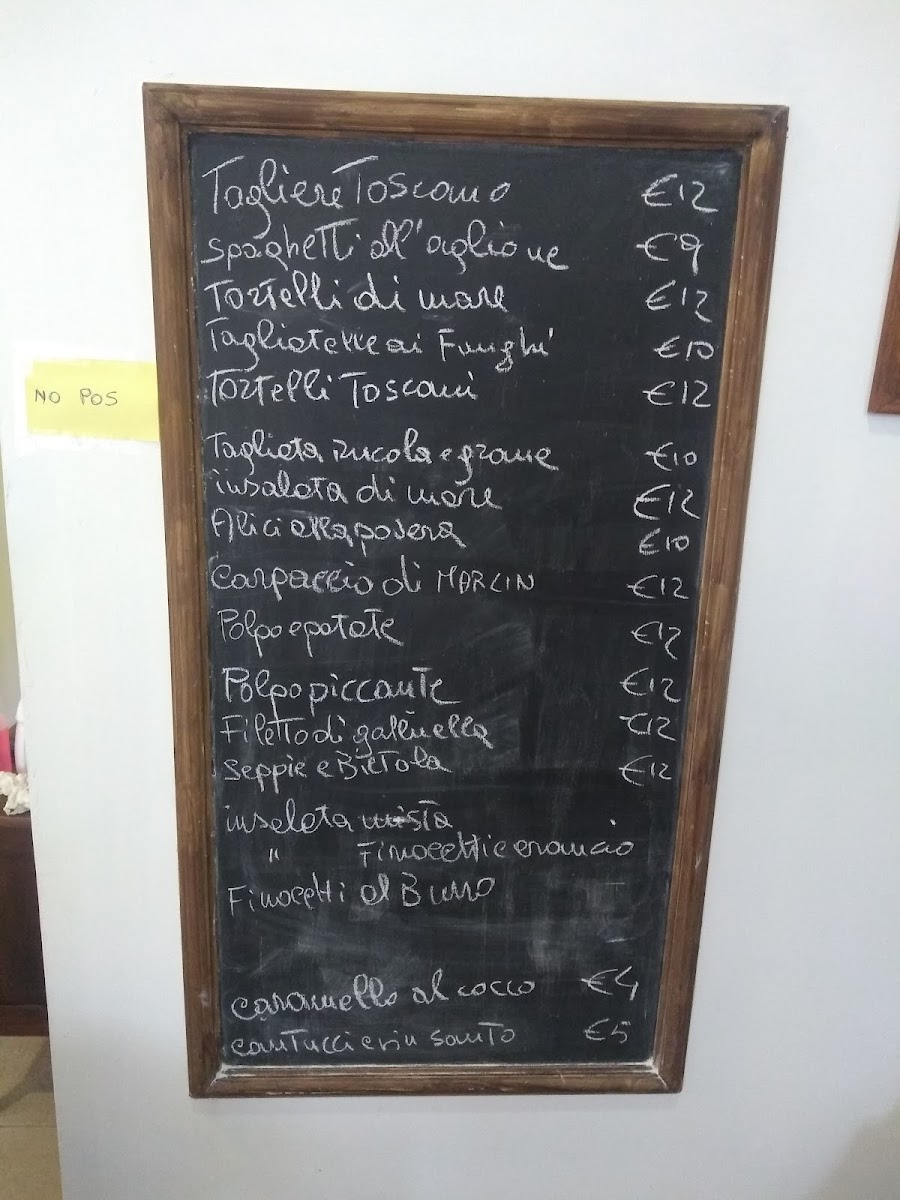 Tagliere Toscano €12
spaghetti all'aglione €9
Tortelli di mare €12
Tagliatelle ai Funghi €10
Tortelli Toscani €12
NO POS
Tagliata rucola e grane €10
insalata di mare €12
Alici alla povera €10
Carpaccio di MARLIN €12
Polpo e patate €12
Polpo piccante €12
Filetto di gallinella €12
seppie e Bietola €12
insalata mista
" Finocchi e arancio
Finocchi al Burro
caramello al cocco €4
cantucci e vin santo €5